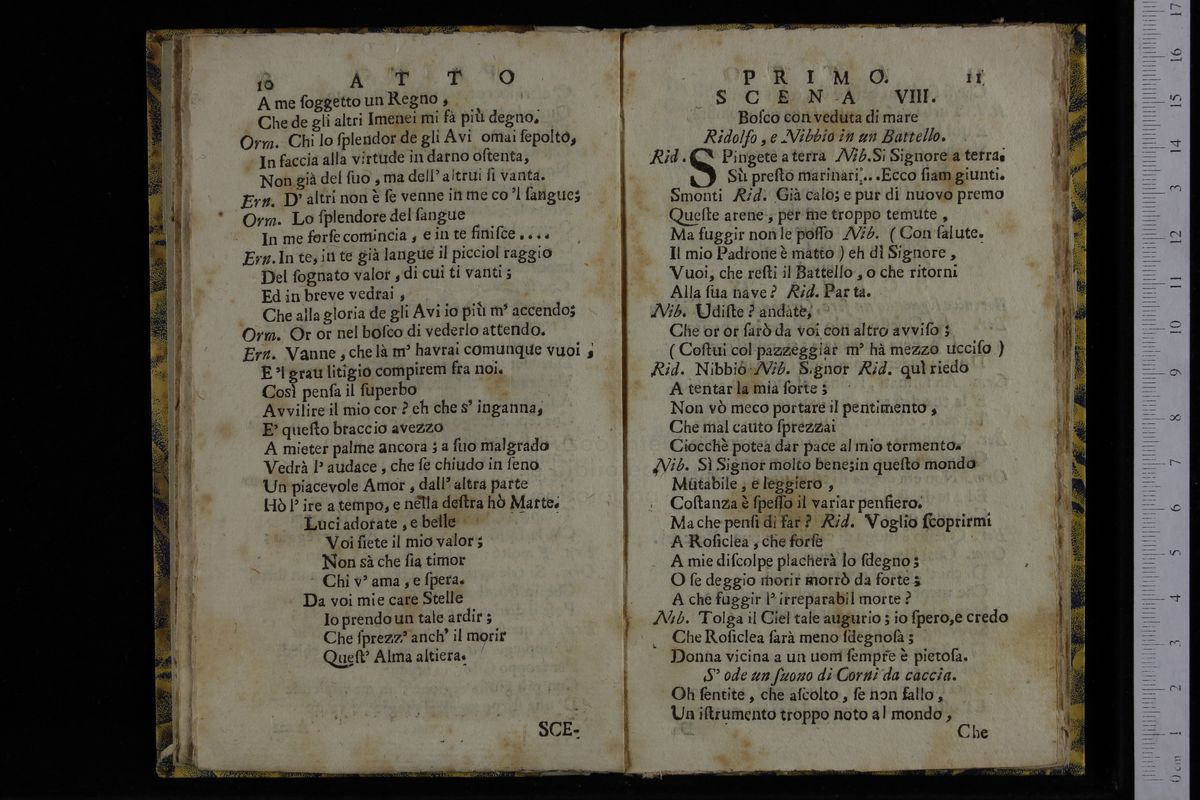 10 ATTO
A me ſoggetto un Regno,
Che de gli altri Imenei mi fà più degno.
Orm. Chi lo ſplendor de gli Avi omai ſepolto,
In faccia alla virtude in darno oſtenta,
Non già del ſuo, ma dell' altrui ſi vanta.
Ern. D' altri non è ſe venne in me co 'l ſangue;
Orm. Lo ſplendore del ſangue
In me forſe comincia, e in te finiſce....
Ern. In te, in te già langue il picciol raggio
Del ſognato valor, di cui ti vanti;
Ed in breve vedrai,
Che alla gloria de gli Avi io più m' accendo;
Orm. Or or nel boſco di vederlo attendo.
Ern. Vanne, che là m' havrai comunque vuoi;
E 'l grau litigio compirem fra noi.
Così penſa il ſuperbo
Avvilire il mio cor? eh che s' inganna,
E' queſto braccio avezzo
A mieter palme ancora; a ſuo malgrado
Vedrà l' audace, che ſe chiudo in ſeno
Un piacevole Amor, dall' altra parte
Hò l' ire a tempo, e nella deſtra hò Marte.
Luci adorate, e belle
Voi ſiete il mio valor;
Non sà che ſia timor
Chi v' ama, e ſpera.
Da voi mie care Stelle
Io prendo un tale ardir;
Che ſprezz' anch' il morir
Queſt' Alma altiera.
SCE-
PRIMO. 11
SCENA VIII.
Boſco con veduta di mare
Ridolfo, e Nibbio in un Battello.
Rid. SPingete a terra Nib. Si Signore a terra.
Sù preſto marinari... .Ecco ſiam giunti.
Smonti Rid. Già calo; e pur di nuovo premo
Queſte arene, per me troppo temute,
Ma fuggir non le poſſo Nib. (Con ſalute.
Il mio Padrone è matto) eh dì Signore,
Vuoi, che reſti il Battello, o che ritorni
Alla ſua nave? Rid. Parta.
Nib. Udiſte? andate,
Che or or ſarò da voi con altro avviſo;
(Coſtui col pazzeggiar m' hà mezzo ucciſo)
Rid. Nibbio Nib. Signor Rid. quì riedo
A tentar la mia ſorte;
Non vò meco portare il pentimento,
Che mal cauto ſprezzai
Ciocchè potea dar pace al mio tormento.
Nib. Sì Signor molto bene;in queſto mondo
Mutabile, e leggiero,
Coſtanza è ſpeſſo il variar penſiero.
Ma che penſi di far? Rid. Voglio ſcoprirmi
A Roſiclea, che forſe
A mie diſcolpe placherà lo ſdegno;
O ſe deggio morir morrò da forte;
A che fuggir l' irreparabil morte?
Nib. Tolga il Ciel tale augurio; io ſpero,e credo
Che Roſiclea ſarà meno ſdegnoſa;
Donna vicina a un uom ſempre è pietoſa.
S' ode un ſuono di Corni da caccia.
Oh ſentite, che aſcolto, ſe non fallo,
Un iſtrumento troppo noto al mondo,
Che
0 cm 1 2 3 4 5 6 7 8 9 10 11 12 13 14 15 16 17